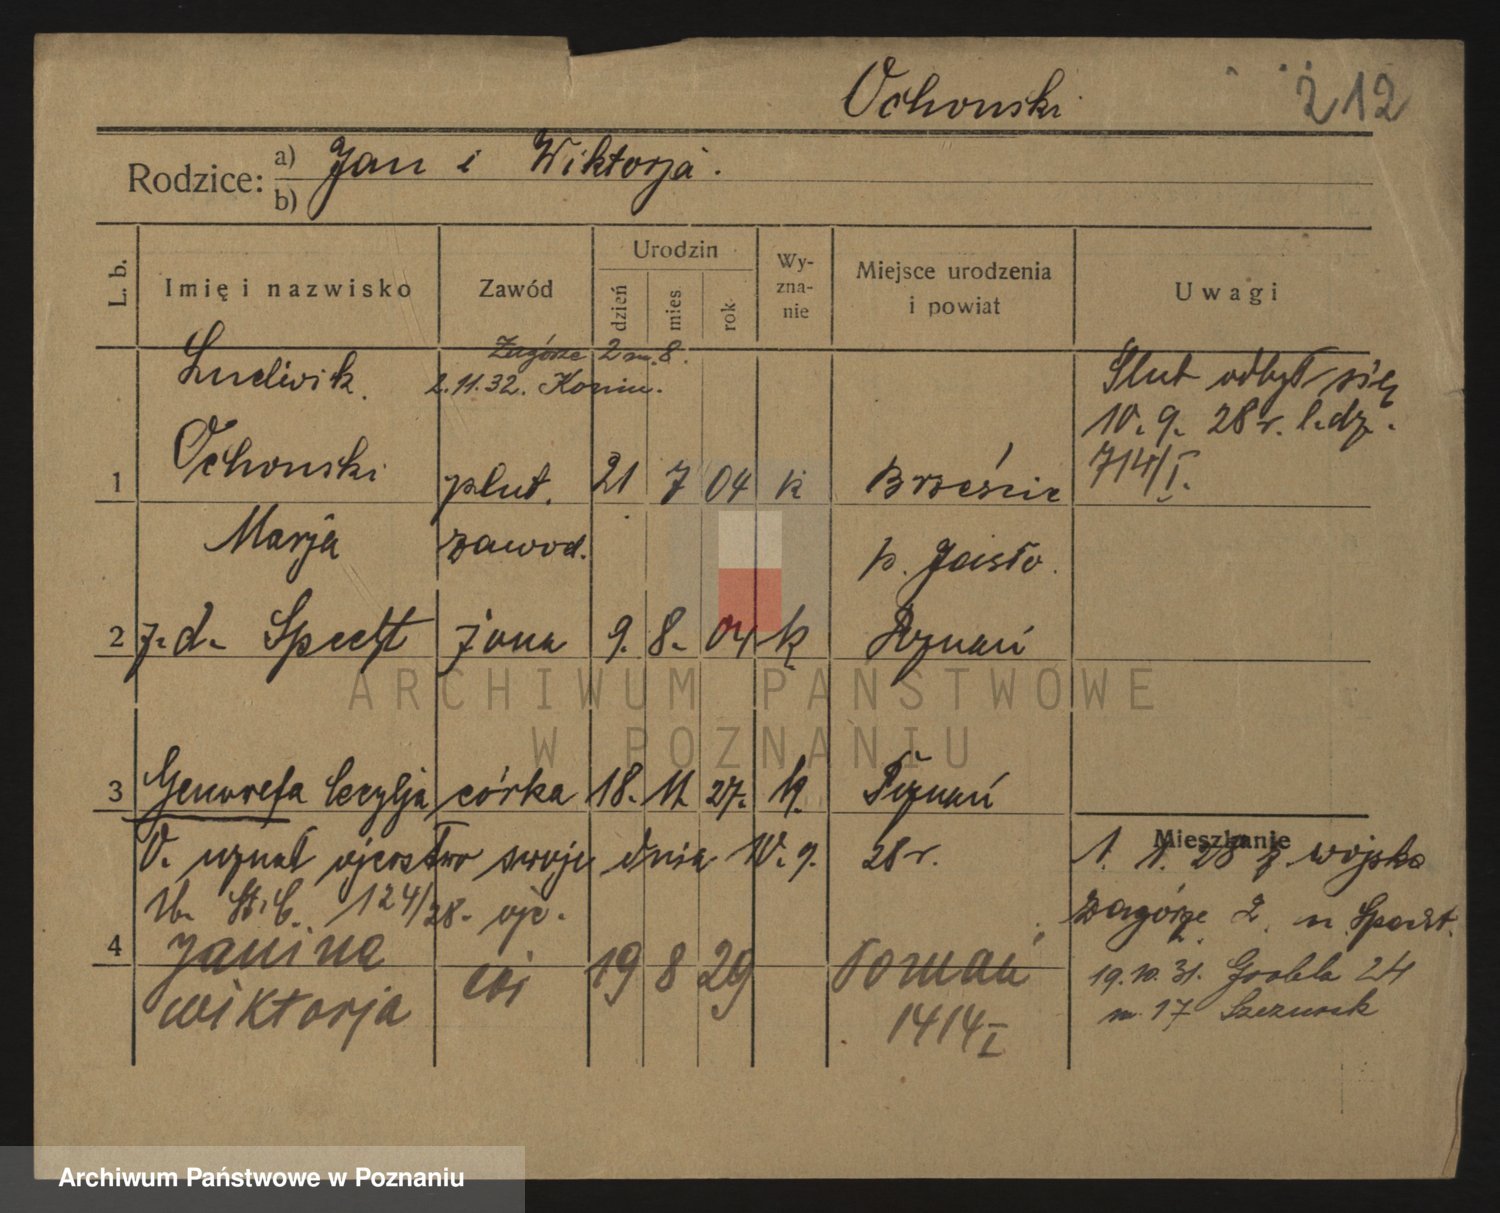 Ochonski 212
Rodzice: a) Jan i Wiktorja.
b)
L. b. Imię i nazwisko Zawód Urodzin dzień mies rok Wy-zna-nie Miejsce urodzenia i powiat Uwagi
Zagórze 2 m. 8.
Ludwik. 2.11.32. Konin. Ślub odbył się
10. 9. 28 r. l. dz.
1 Ochonski plut. 21 7 04 k Brzeście 714/I.
Marja zawod. p. Jasło.
2 z. d. Specht żona 9. 8. 04 k Poznań
3 Genowefa Cecylja córka 18. 11 27. k. Poznań
Mieszkanie
O. uznał ojcostwo swoje dnia 10. 9. 28 r. 1. 1. 28 z wojska
U. St. C. 124/28. Zagórze 2. u Specht.
4 Janina 19 8 29 Poznań 19.10.31. Grobla 24
Wiktorja 1414 I m. 17 Szczurek
ARCHIWUM PAŃSTWOWE
W POZNANIU
Archiwum Państwowe w Poznaniu